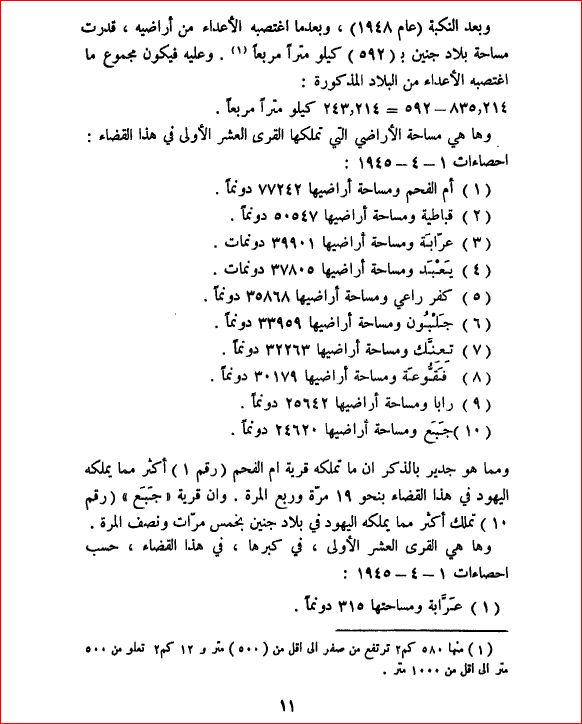 وبعد النكبة (عام ١٩٤٨) ، وبعدما اغتصبه الأعداء من أراضيه ، قدرت
مساحة بلاد جنين بـ (٥٩٢) كيلو متراً مربعاً (١) . وعليه فيكون مجموع ما
اغتصبه الأعداء من البلاد المذكورة :
٨٣٥,٢١٤ – ٥٩٢ = ٢٤٣,٢١٤ كيلو متراً مربعاً .
وها هي مساحة الأراضي التي تملكها القرى العشر الأولى في هذا القضاء :
احصاءات ١ – ٤ – ١٩٤٥ :
(١) أم الفحم ومساحة أراضيها ٧٧٢٤٢ دونماً .
(٢) قباطية ومساحة أراضيها ٥٠٥٤٧ دونماً .
(٣) عرّابَة ومساحة أراضيها ٣٩٩٠١ دونمات .
(٤) يَعْبَد ومساحة أراضيها ٣٧٨٠٥ دونمات .
(٥) كفر راعي ومساحة أراضيها ٣٥٨٦٨ دونماً .
(٦) جَلْبُون ومساحة أراضيها ٣٣٩٥٩ دونماً .
(٧) تِعِنَّك ومساحة أراضيها ٣٢٢٦٣ دونماً .
(٨) فَقُّوعَة ومساحة أراضيها ٣٠١٧٩ دونماً .
(٩) رابا ومساحة أراضيها ٢٥٦٤٢ دونماً .
(١٠) جَبَع ومساحة أراضيها ٢٤٦٢٠ دونماً .
ومما هو جدير بالذكر ان ما تملكه قرية ام الفحم (رقم ١) أكثر مما يملكه
اليهود في هذا القضاء بنحو ١٩ مرّة وربع المرة . وان قرية « جَبَع » (رقم
١٠) تملك أكثر مما يملكه اليهود في بلاد جنين بخمس مرّات ونصف المرة .
وها هي القرى العشر الأولى ، في كبرها ، في هذا القضاء ، حسب
احصاءات ١ – ٤ – ١٩٤٥ :
(١) عَرَّابة ومساحتها ٣١٥ دونماً .
(١) منها ٥٨٠ كم٢ ترتفع من صفر الى اقل من (٥٠٠) متر و ١٢ كم٢ تعلو من ٥٠٠
متر الى اقل من ١٠٠٠ متر .
١١